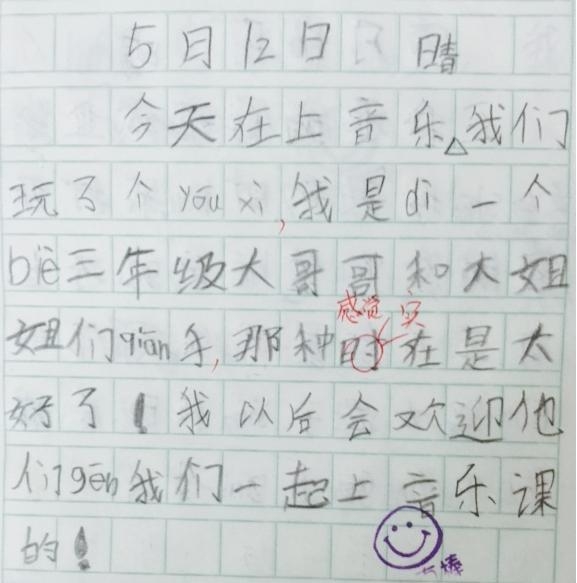 5月12日 晴
今天在上音乐,我们
玩了个yóu xì,我是dì一个
bèi三年级大哥哥和大姐
感觉 实
姐们qiān手,那种时在是太
好了!我以后会欢迎他
们gēn我们一起上音乐课
的!
棒